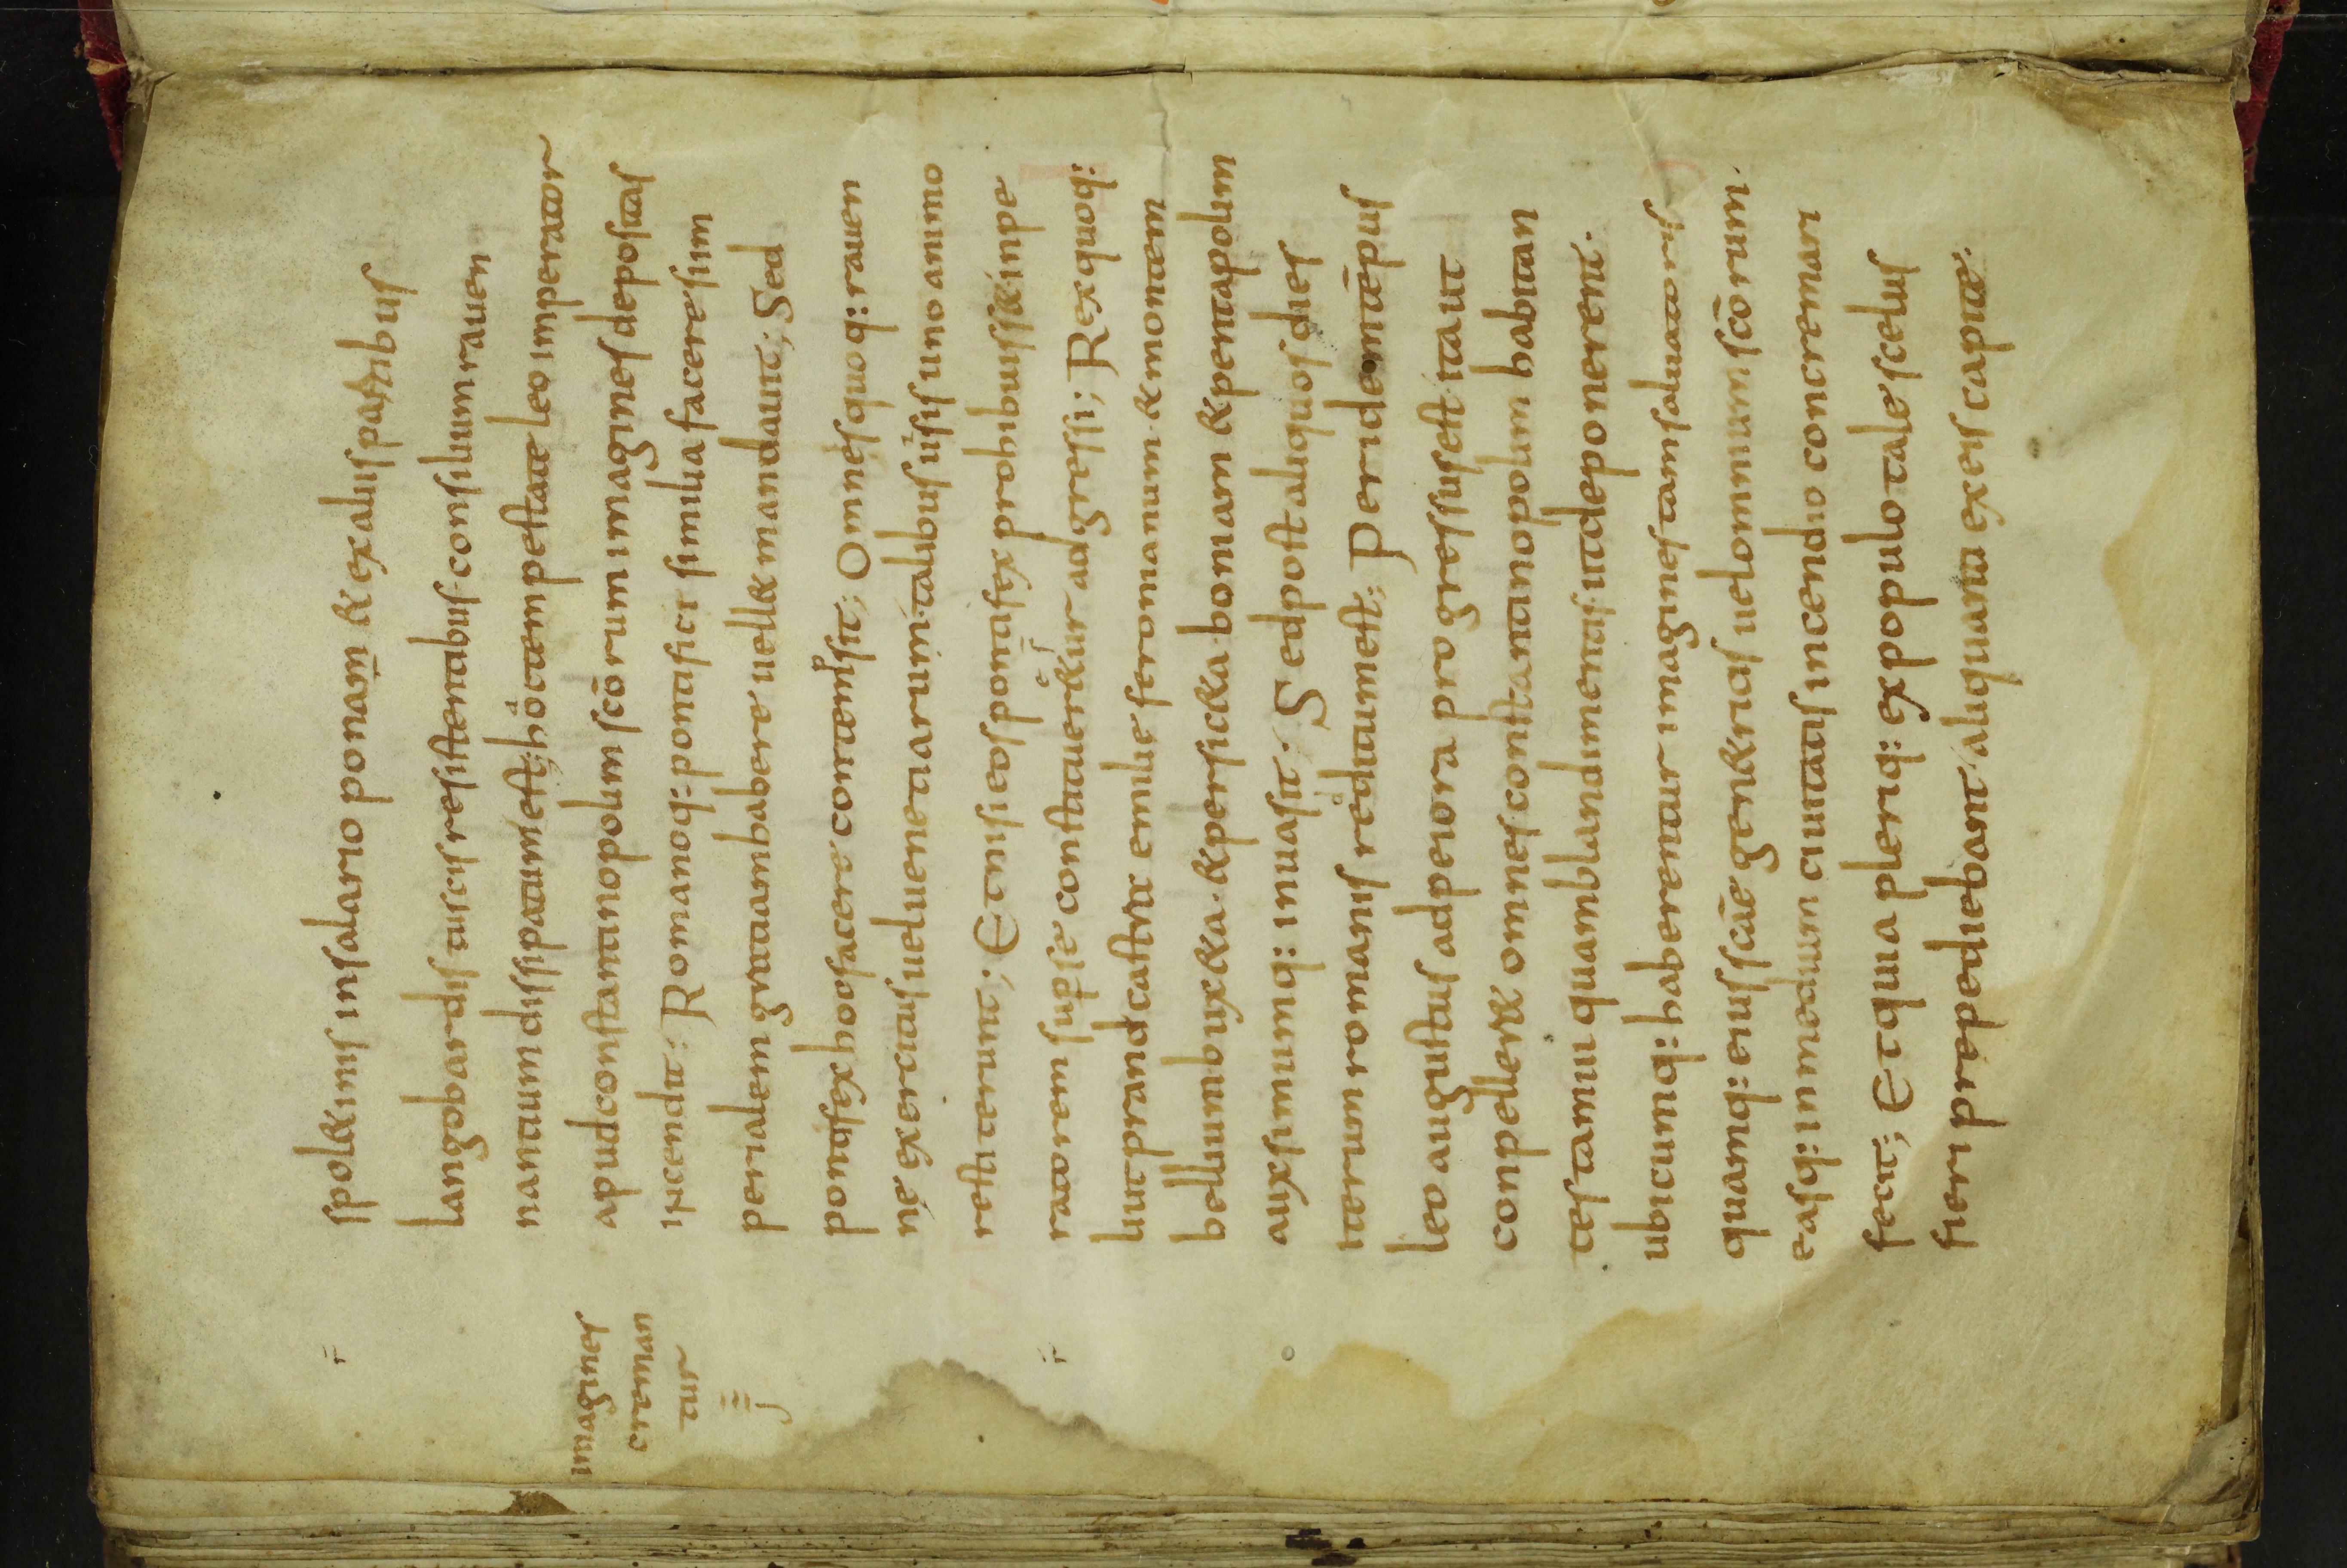 spol&inis insalario ponam & exaliis partibus
langobardis tuscis resistentibus consilium rauen
nantium dissipatum est; hoc tempestate leo imperator
apud constantinopolim scōrum imagines depositas
incendit; Romanoq: pontifici similia facere sim
perialem gratiam habere uell& mandauit; Sed
pontifex hoc facere contempsit; Omnes quoq: rauen
ne exercitus uel uenetiarum talibus iussis uno animo
restiterunt; Et nisi eos pontifex prohibuiss& inpe
ratorem sup se constituere adgressi; Rex quoq:
liutprand castra emilie feronianum & montem
bellium buxeta & persiceta bomam & pentapolim
auximumq: inuasit; Sed post aliquos dies
iterum romanis redditum est; Per idem tēpus
leo augustus ad peiora progressus est ita ut
conpeller& omnes constantinopolim habitan
tes tam ui quam blandimentis ut deponerent
ubicumq: haberentur imagines tam saluatoris
quamq: eius scāe genetricis uel omnium scōrum.
easq: in medium ciuitatis incendio concremari
fecit; Et quia pleriq: ex populo tale scelus
fieri prepediebant aliquanti ex eis capite.
imagines
creman
tur